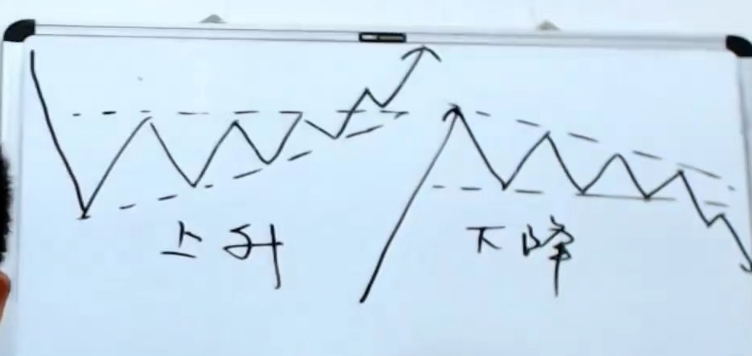 上升
下降